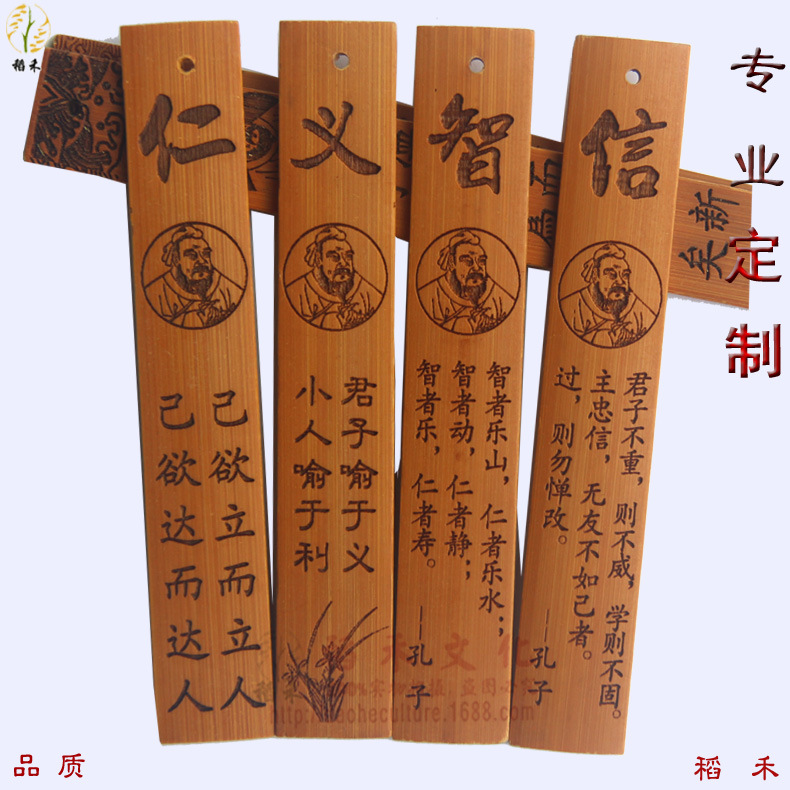 稻禾
专业定制
仁
己欲立而立人
己欲达而达人
义
君子喻于义
小人喻于利
智
智者乐山，仁者乐水；
智者动，仁者静；
智者乐，仁者寿。
——孔子
信
君子不重，则不威，学则不固。
主忠信，无友不如己者。
过，则勿惮改。
——孔子
新
矣
稻禾文化
品质
稻禾